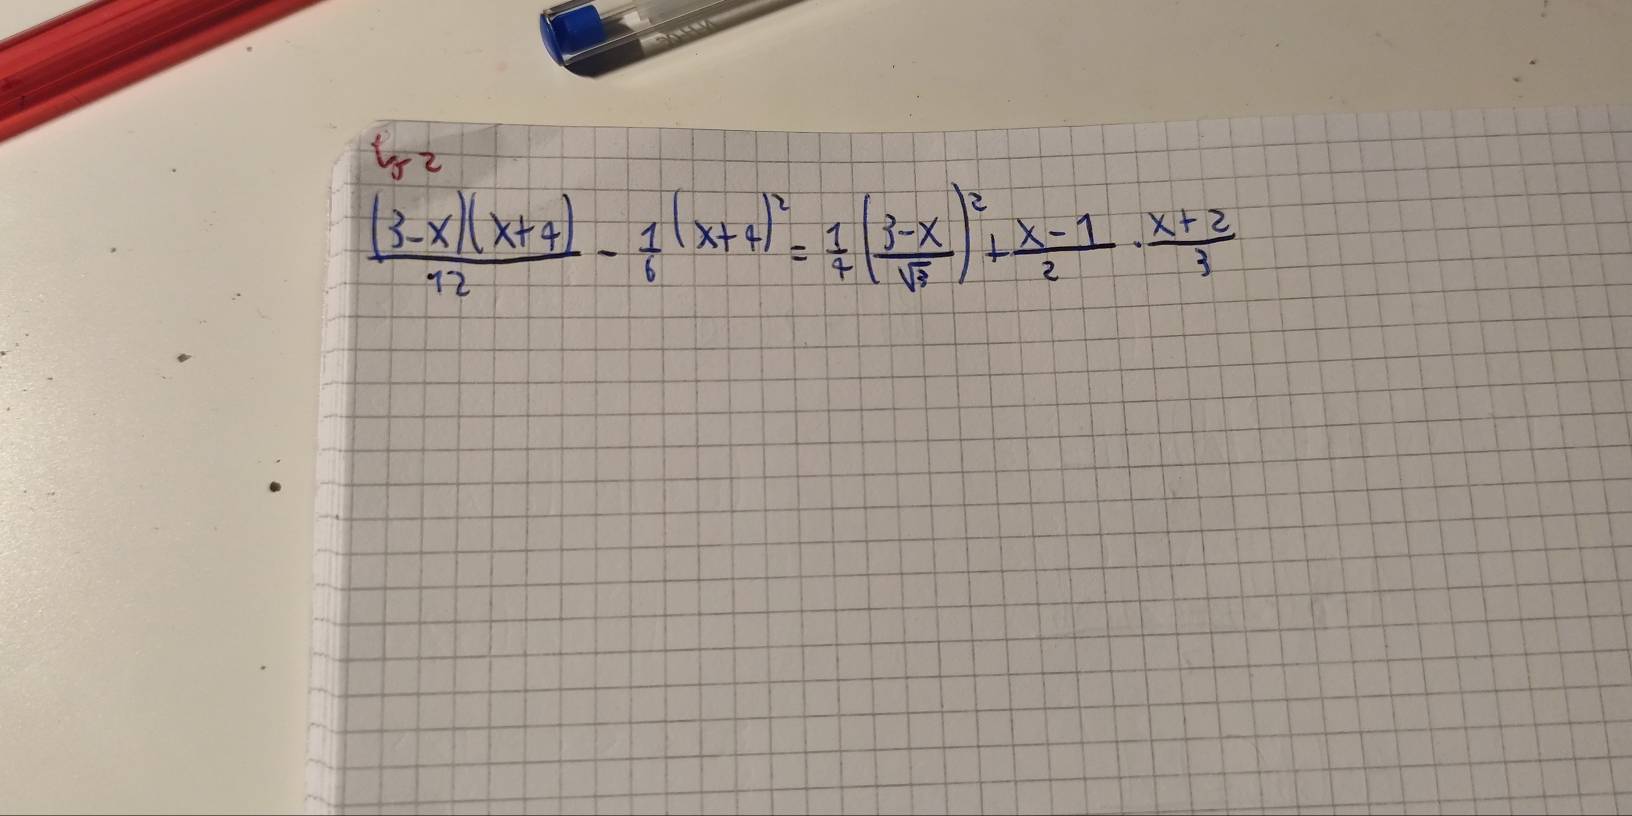 (3-x)(x+4)/12 - 1/6 (x+4)² = 1/4 ((3-x)/√3)² + (x-1)/2 · (x+2)/3